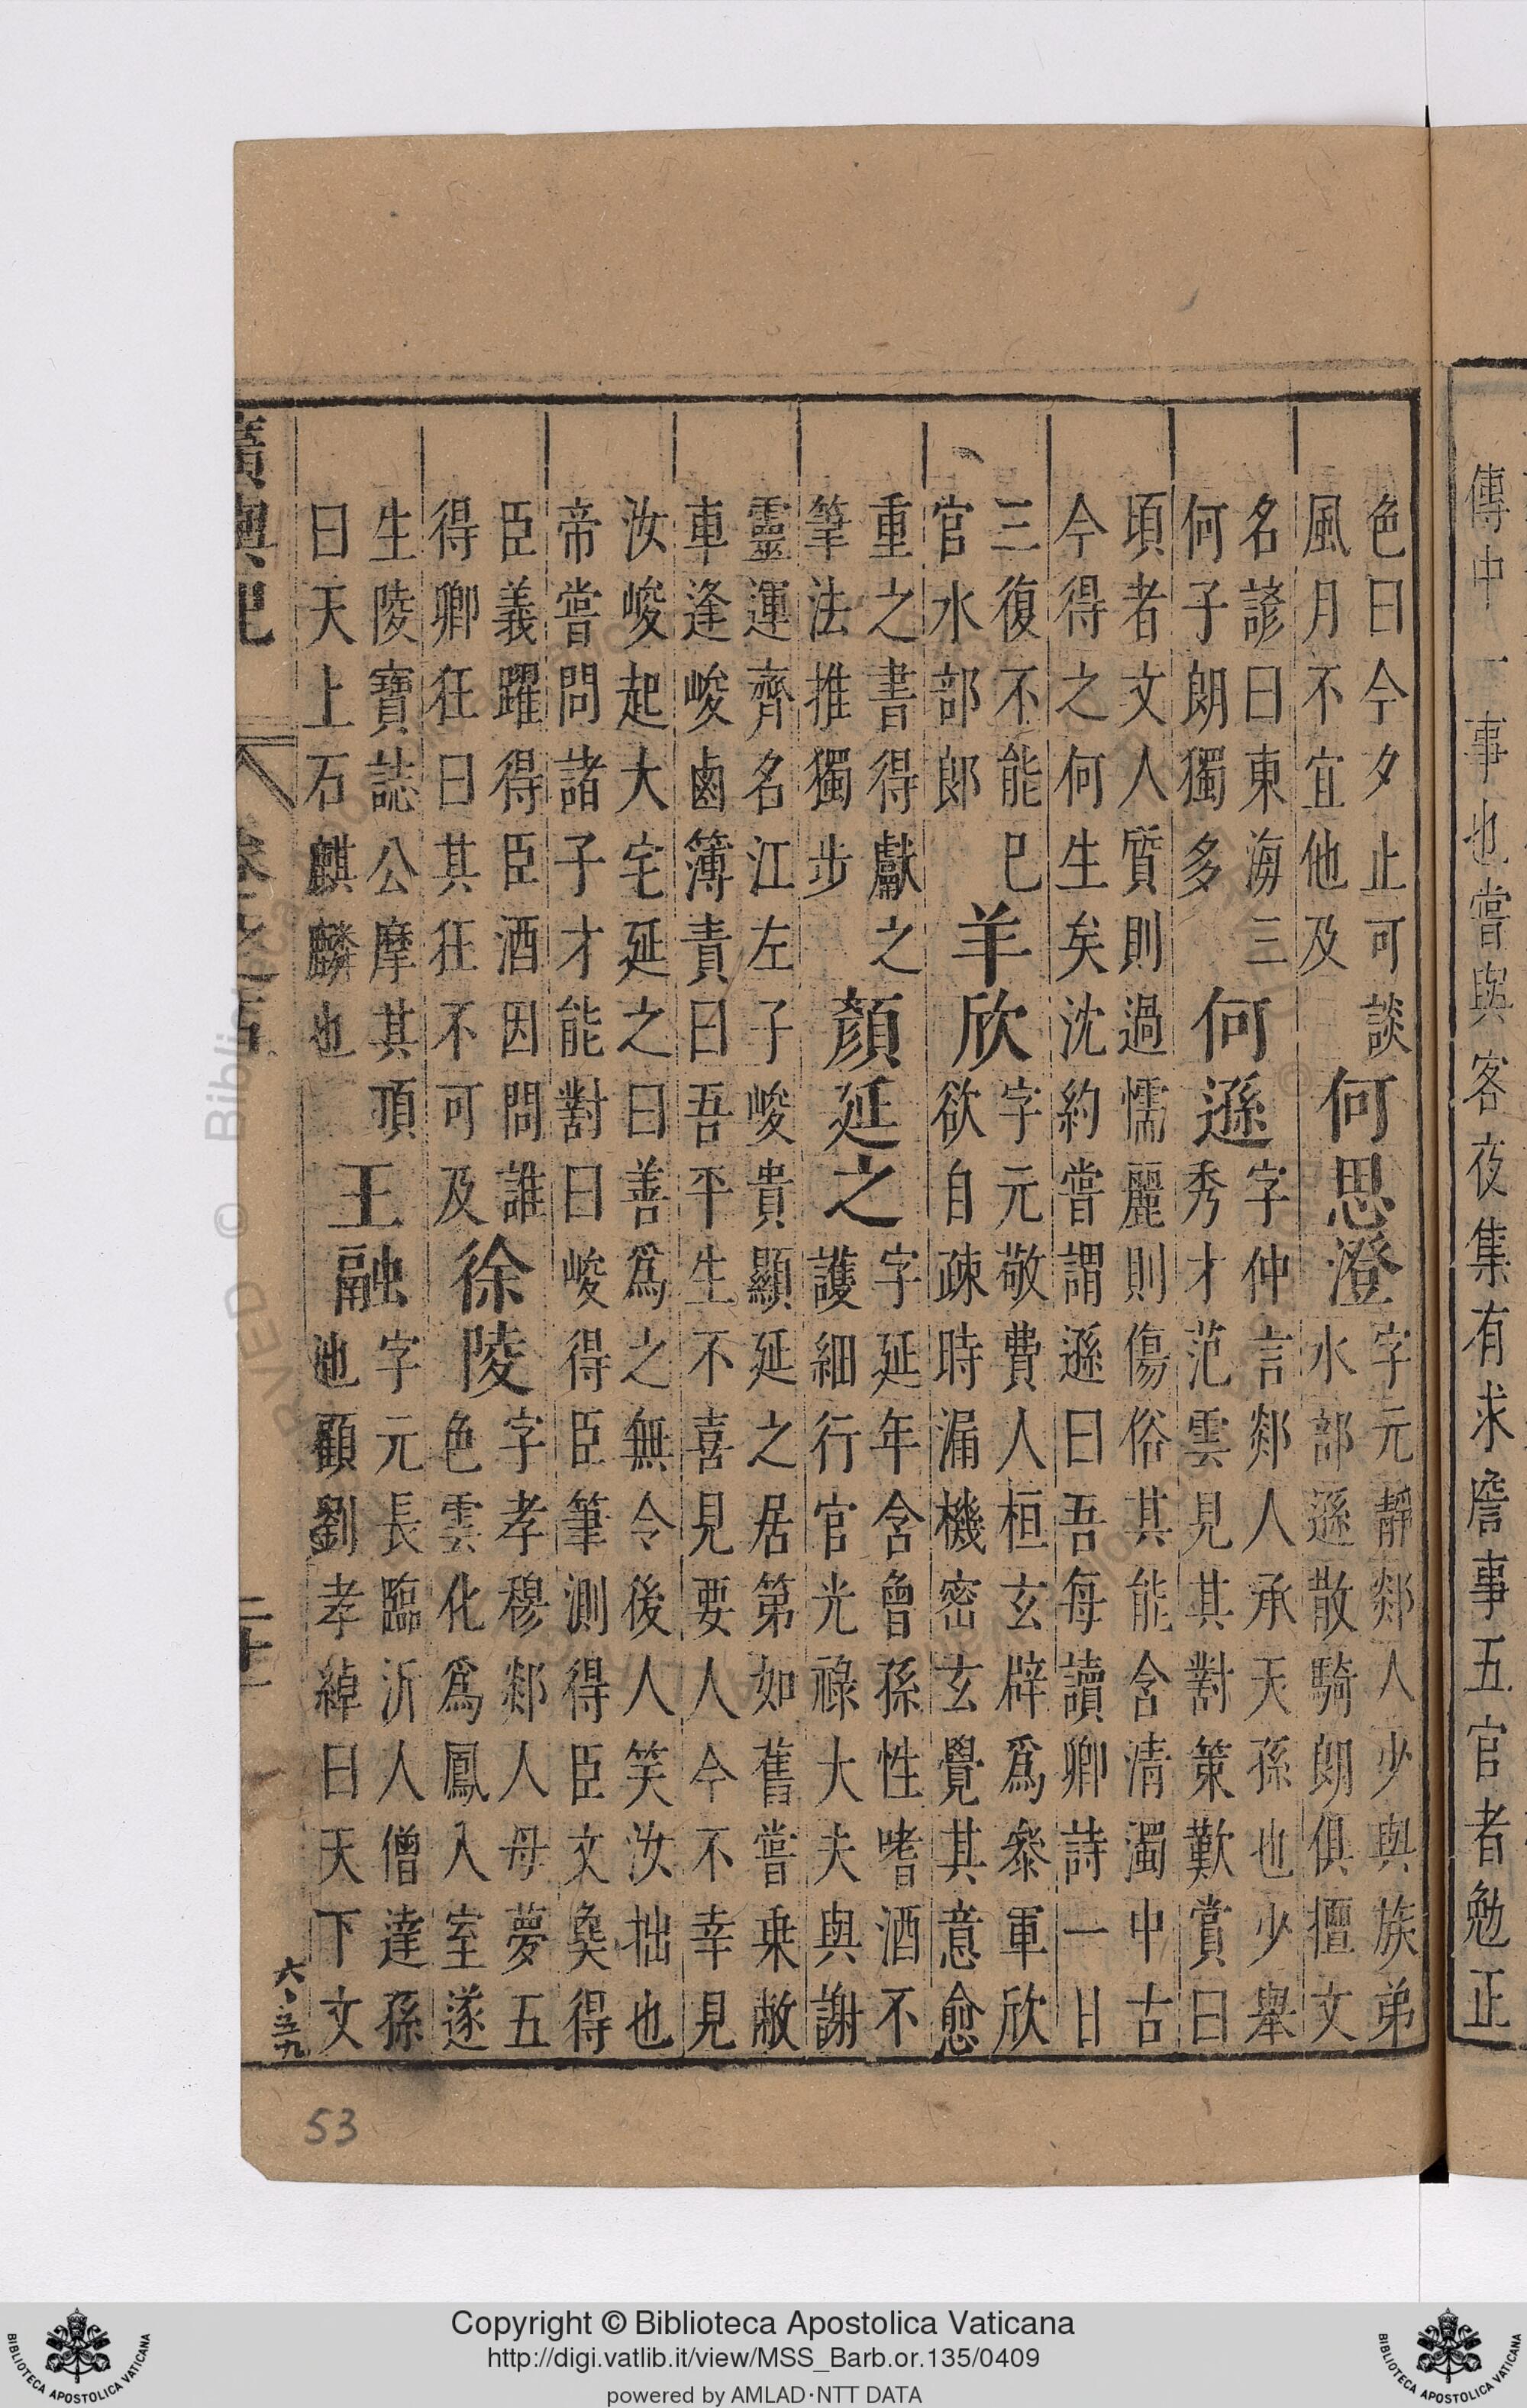 傳中一事也嘗與客夜集有求詹事五官者勉正
色曰今夕止可談
風月不宜他及
何思澄
字元靜郯人少與族弟
水部遜散騎朗俱擅文
名諺曰東海三
何子朗獨多
何遜
字仲言郯人承天孫也少舉
秀才范雲見其對策歎賞曰
頃者文人質則過懦麗則傷俗其能含清濁中古
今得之何生矣沈約嘗謂遜曰吾每讀卿詩一日
三復不能巳
官水部郎
羊欣
字元敬費人桓玄辟爲參軍欣
欲自疎時漏機密玄覺其意愈
重之書得獻之
筆法推獨步
顏延之
字延年含曾孫性嗜酒不
護細行官光祿大夫與謝
靈運齊名江左子峻貴顯延之居第如舊嘗乗敝
車逢峻鹵簿責曰吾平生不喜見要人今不幸見
汝峻起大宅延之曰善爲之無令後人笑汝拙也
帝嘗問諸子才能對曰峻得臣筆測得臣文㚟得
臣義躍得臣酒因問誰
得卿狂曰其狂不可及
徐陵
字孝穆郯人母夢五
色雲化爲鳳入室遂
生陵寶誌公摩其頂
曰天上石麒麟也
王融
字元長臨沂人僧達孫
也顧劉孝綽曰天下文
廣輿記
六、五九
53
Copyright © Biblioteca Apostolica Vaticana
http://digi.vatlib.it/view/MSS_Barb.or.135/0409
powered by AMLAD·NTT DATA